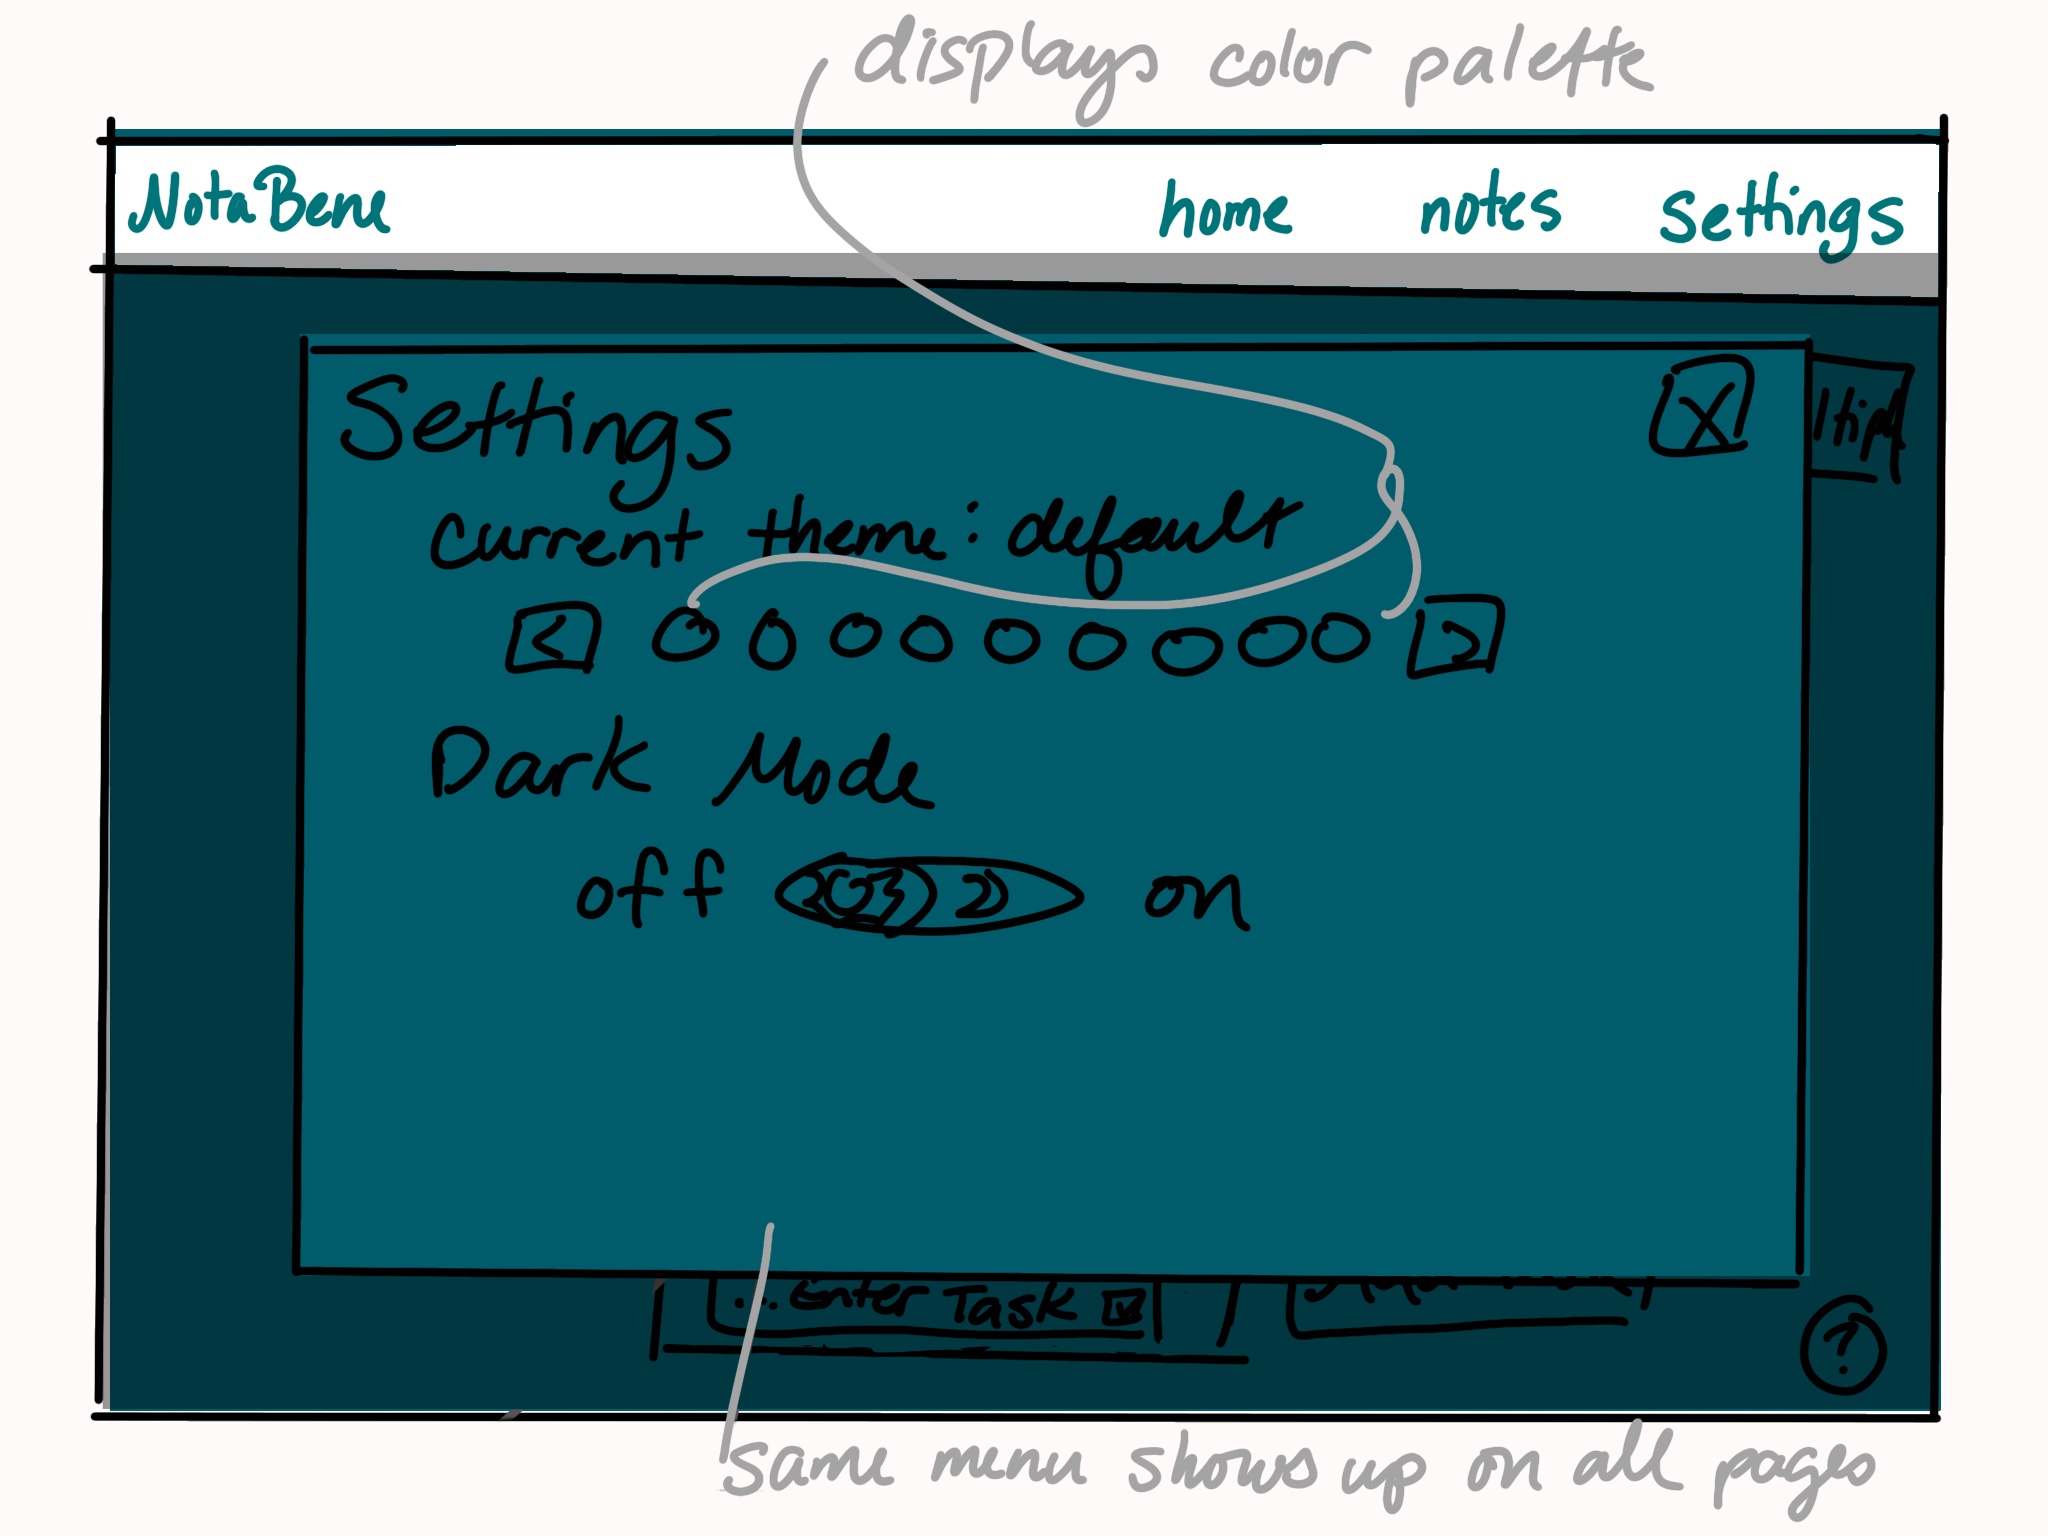 displays color palette
NotaBene home notes settings
Settings X
current theme: default
< >
Dark Mode
off on
... Enter Task
?
same menu shows up on all pages